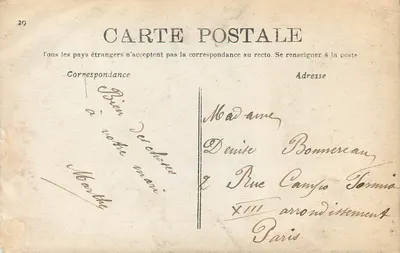 29
CARTE POSTALE
Tous les pays étrangers n'acceptent pas la correspondance au recto. Se renseigner à la poste
Correspondance
Bien des choses
à votre mari
Marthe
Adresse
Madame
Denise Bonnereau
2 Rue Campo Formio
XIII arrondissement
Paris